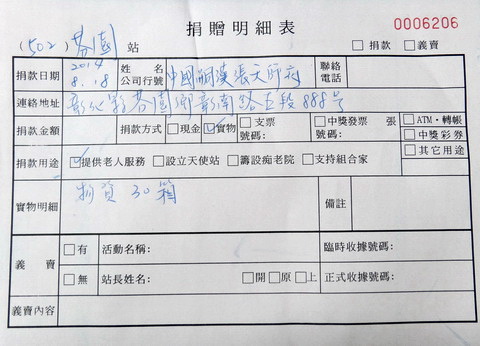 捐贈明細表
0006206
(502) 芬園 站 □捐款 □義賣
捐款日期 2014 8.18 姓名 公司行號 中國嗣漢張天師府 聯絡電話
連絡地址 彰化縣芬園鄉彰南路五段888号
捐款金額 捐款方式 □現金 ☑實物 □支票 號碼: □中獎發票 張 號碼: □ATM・轉帳 □中獎彩券
捐款用途 ☑提供老人服務 □設立天使站 □籌設痴老院 □支持組合家 □其它用途
實物明細 物資 30箱 備註
義賣 □有 活動名稱: 臨時收據號碼:
□無 站長姓名: □開□原□上 正式收據號碼:
義賣內容